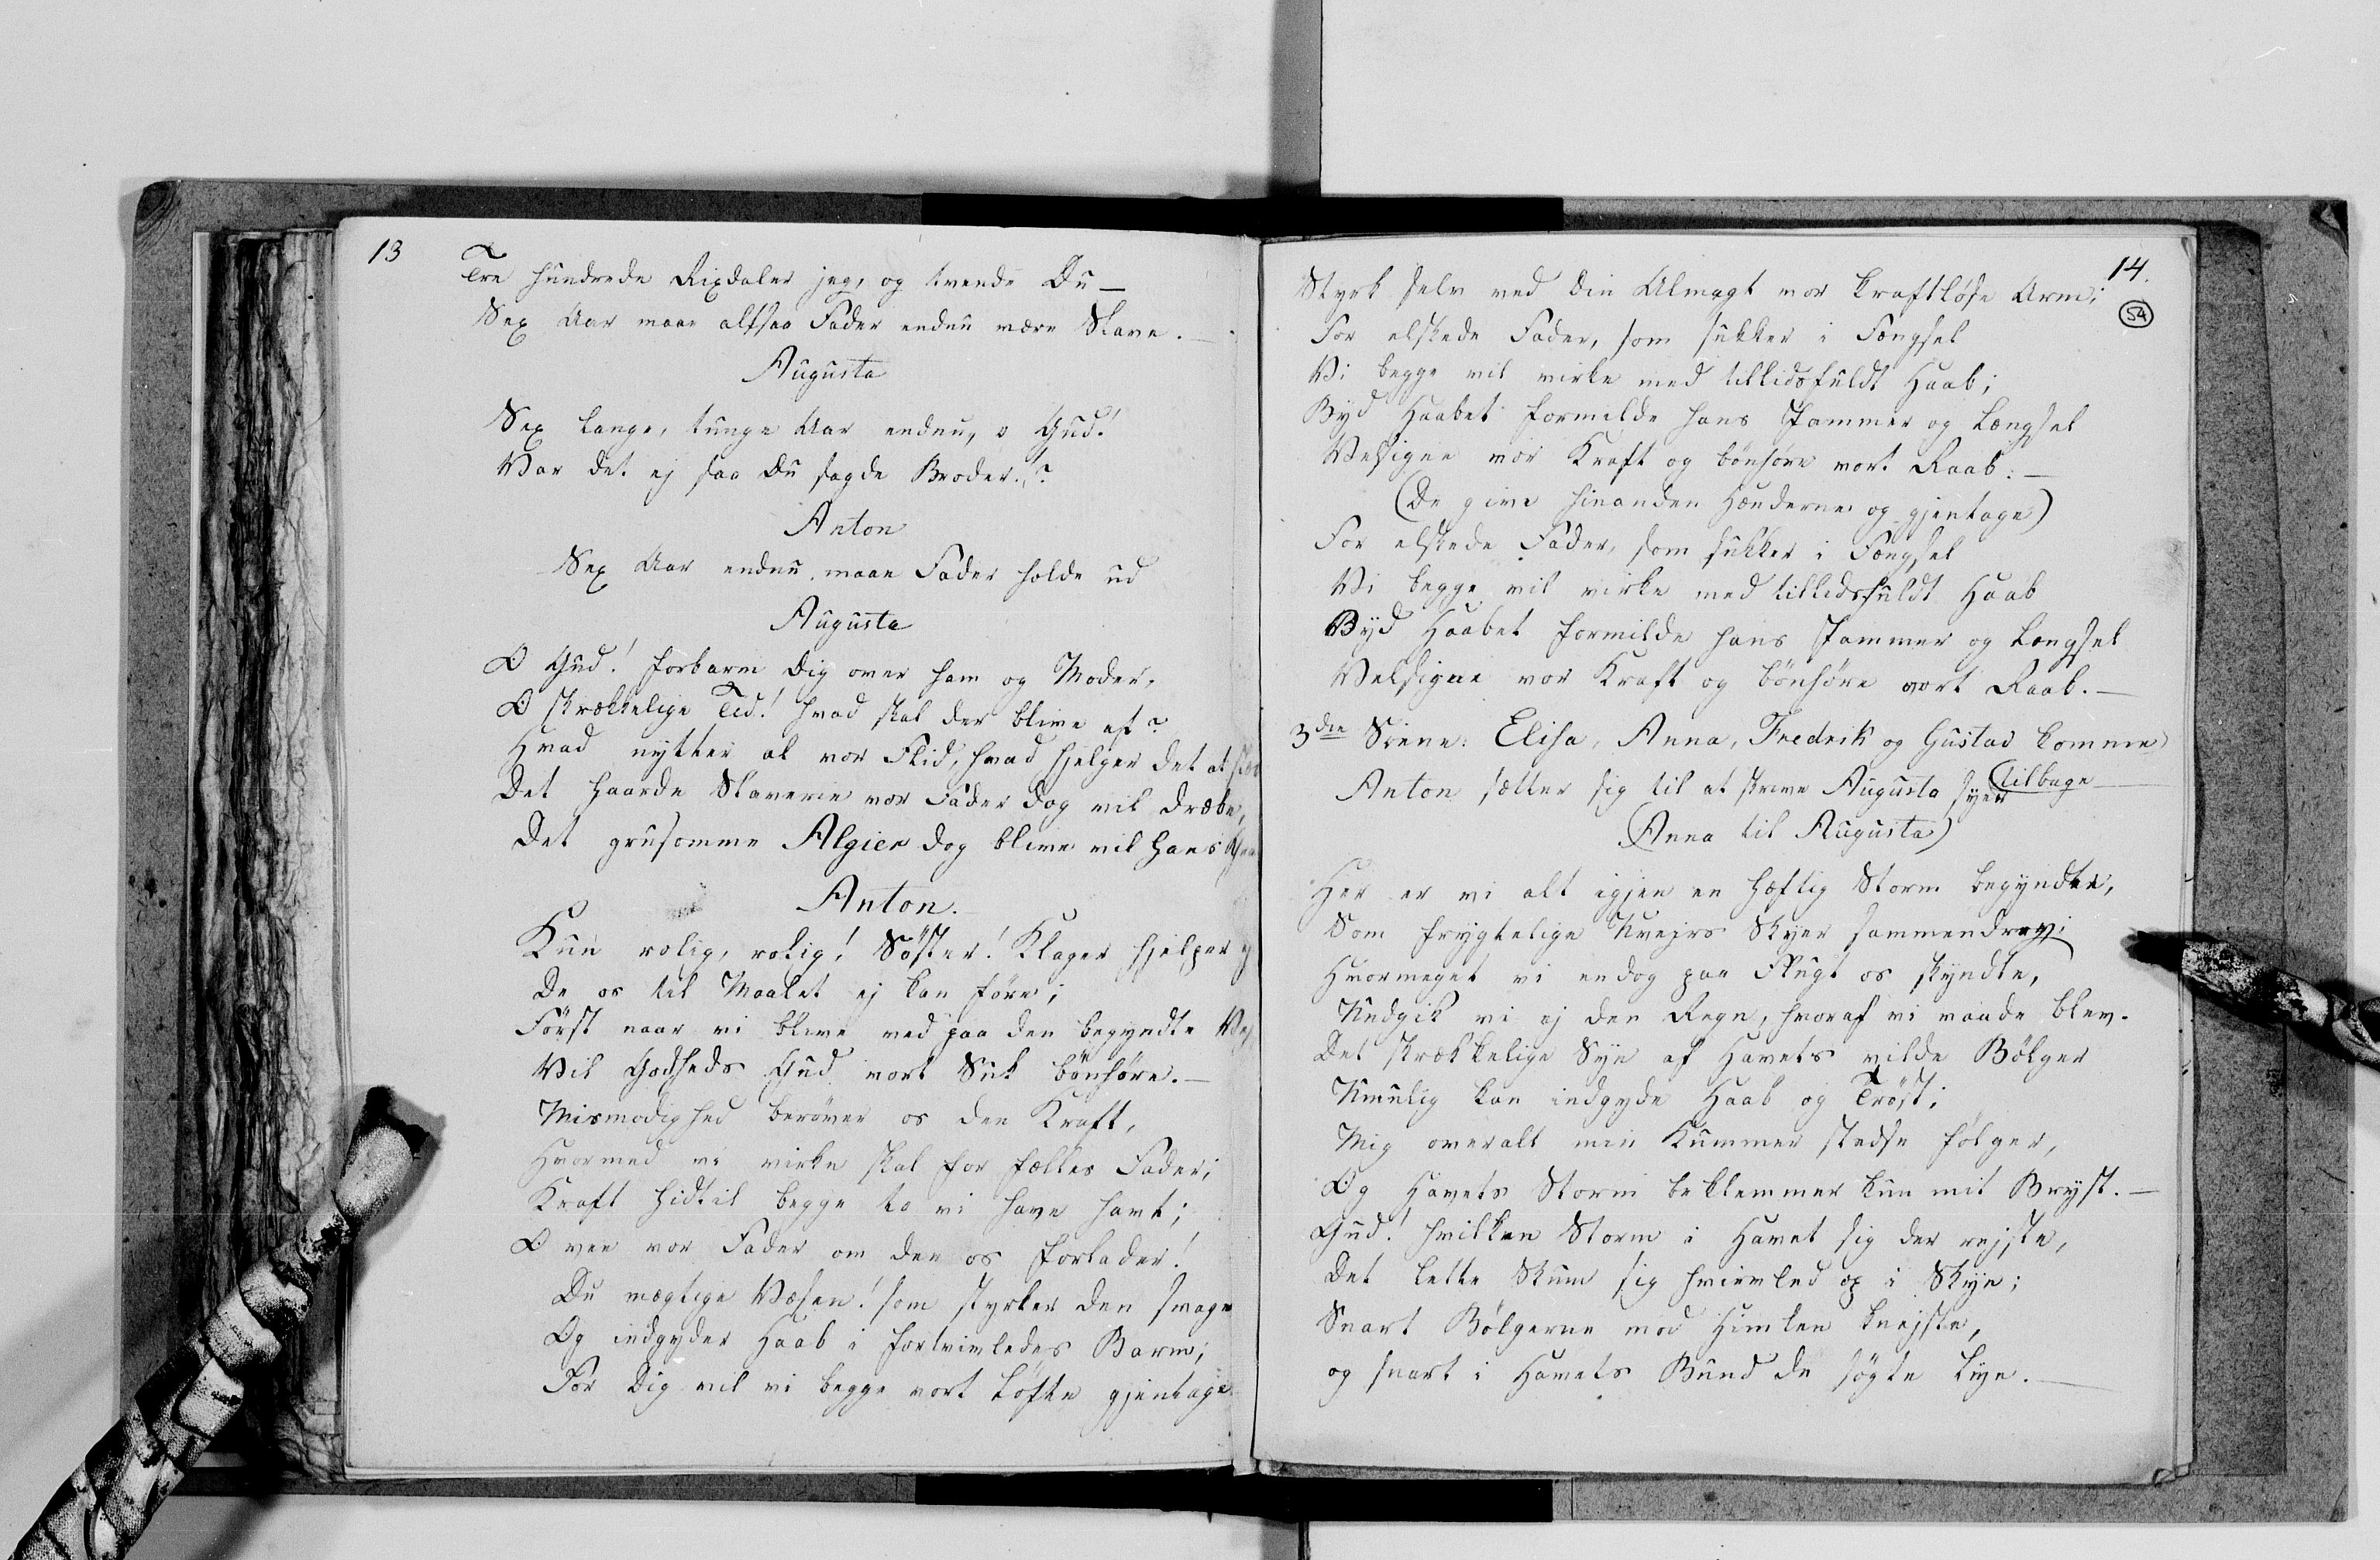 13
Tre hundrede Rixdaler jeg, og tvende Du —
Sex Aar maae altsaa Fader endnu være Slave. —
Augusta
Sex lange, tunge Aar endnu, o Gud!
Var det ej saa Du sagde Broder!?
Anton
Sex Aar endnu maae Fader holde ud
Augusta
O Gud! forbarm Dig over ham og Moder,
O skrækkelige Tid! hvad skal der blive af?
Hvad nytter al vor Flid, hvad hjelper det at
Det haarde Slaverie vor Fader dog vil dræbe,
Det grusomme Algier dog blive vil hans
Anton.
Kun rolig, rolig! Söster! Klager hjelper ej
De os til Maalet ej kan före;
Först naar vi blive ved paa den begyndte Vej,
Vil Godheds Gud vort Suk bönhöre. —
Mismodighed beröver os den Kraft,
Hvormed vi virke skal for fælles Fader;
Kraft hidtil begge to vi have havt;
O vee vor Fader om den os forlader!
Du mægtige Væsen! som styrker den svage
Og indgyder Haab i fortvivledes Barm;
For Dig vil vi begge vort Löfte gjentage
14.
54
Styrk selv ved din Almagt vor kraftlöse Arm;
For elskede Fader, som sukker i Fængsel
Vi begge vil virke med tillidsfuldt Haab;
Byd Haabet formilde hans Jammer og Længsel
Velsigne vor Kraft og bönhöre vort Raab. —
(De give hinanden Hænderne og gjentage)
For elskede Fader, som sukker i Fængsel
Vi begge vil virke med tillidsfuldt Haab
Byd Haabet formilde hans Jammer og Længsel
Velsigne vor Kraft og bönhöre vort Raab. —
3die Scene: Elisa, Anna, Fredrik og Gustav komme
tilbage
Anton sætter sig til at skrive Augusta syer
(Anna til Augusta)
Her er vi alt igjen en hæftig Storm begyndte,
Som frygtelige Uvejrs Skyer sammendrev;
Hvormeget vi endog paa Flugt os skyndte,
Undgik vi ej den Regn, hvoraf vi vaade blev.
Det skrækkelige Syn af Havets vilde Bölger
Umulig kan indgyde Haab og Tröst;
Mig overalt min Kummer stedse fölger,
Og Havets Storm beklemmer kun mit Bryst. —
Gud! hvilken Storm i Havet sig der rejste,
Det lette Skum sig hvirvled op i Skye;
Snart Bölgerne mod Himlen knejste,
og snart i Havets Bund de sögte Lye. —